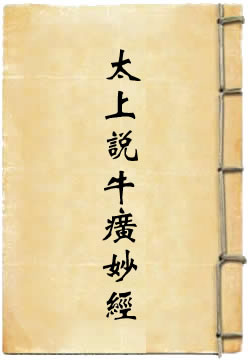 太上説牛癀妙經